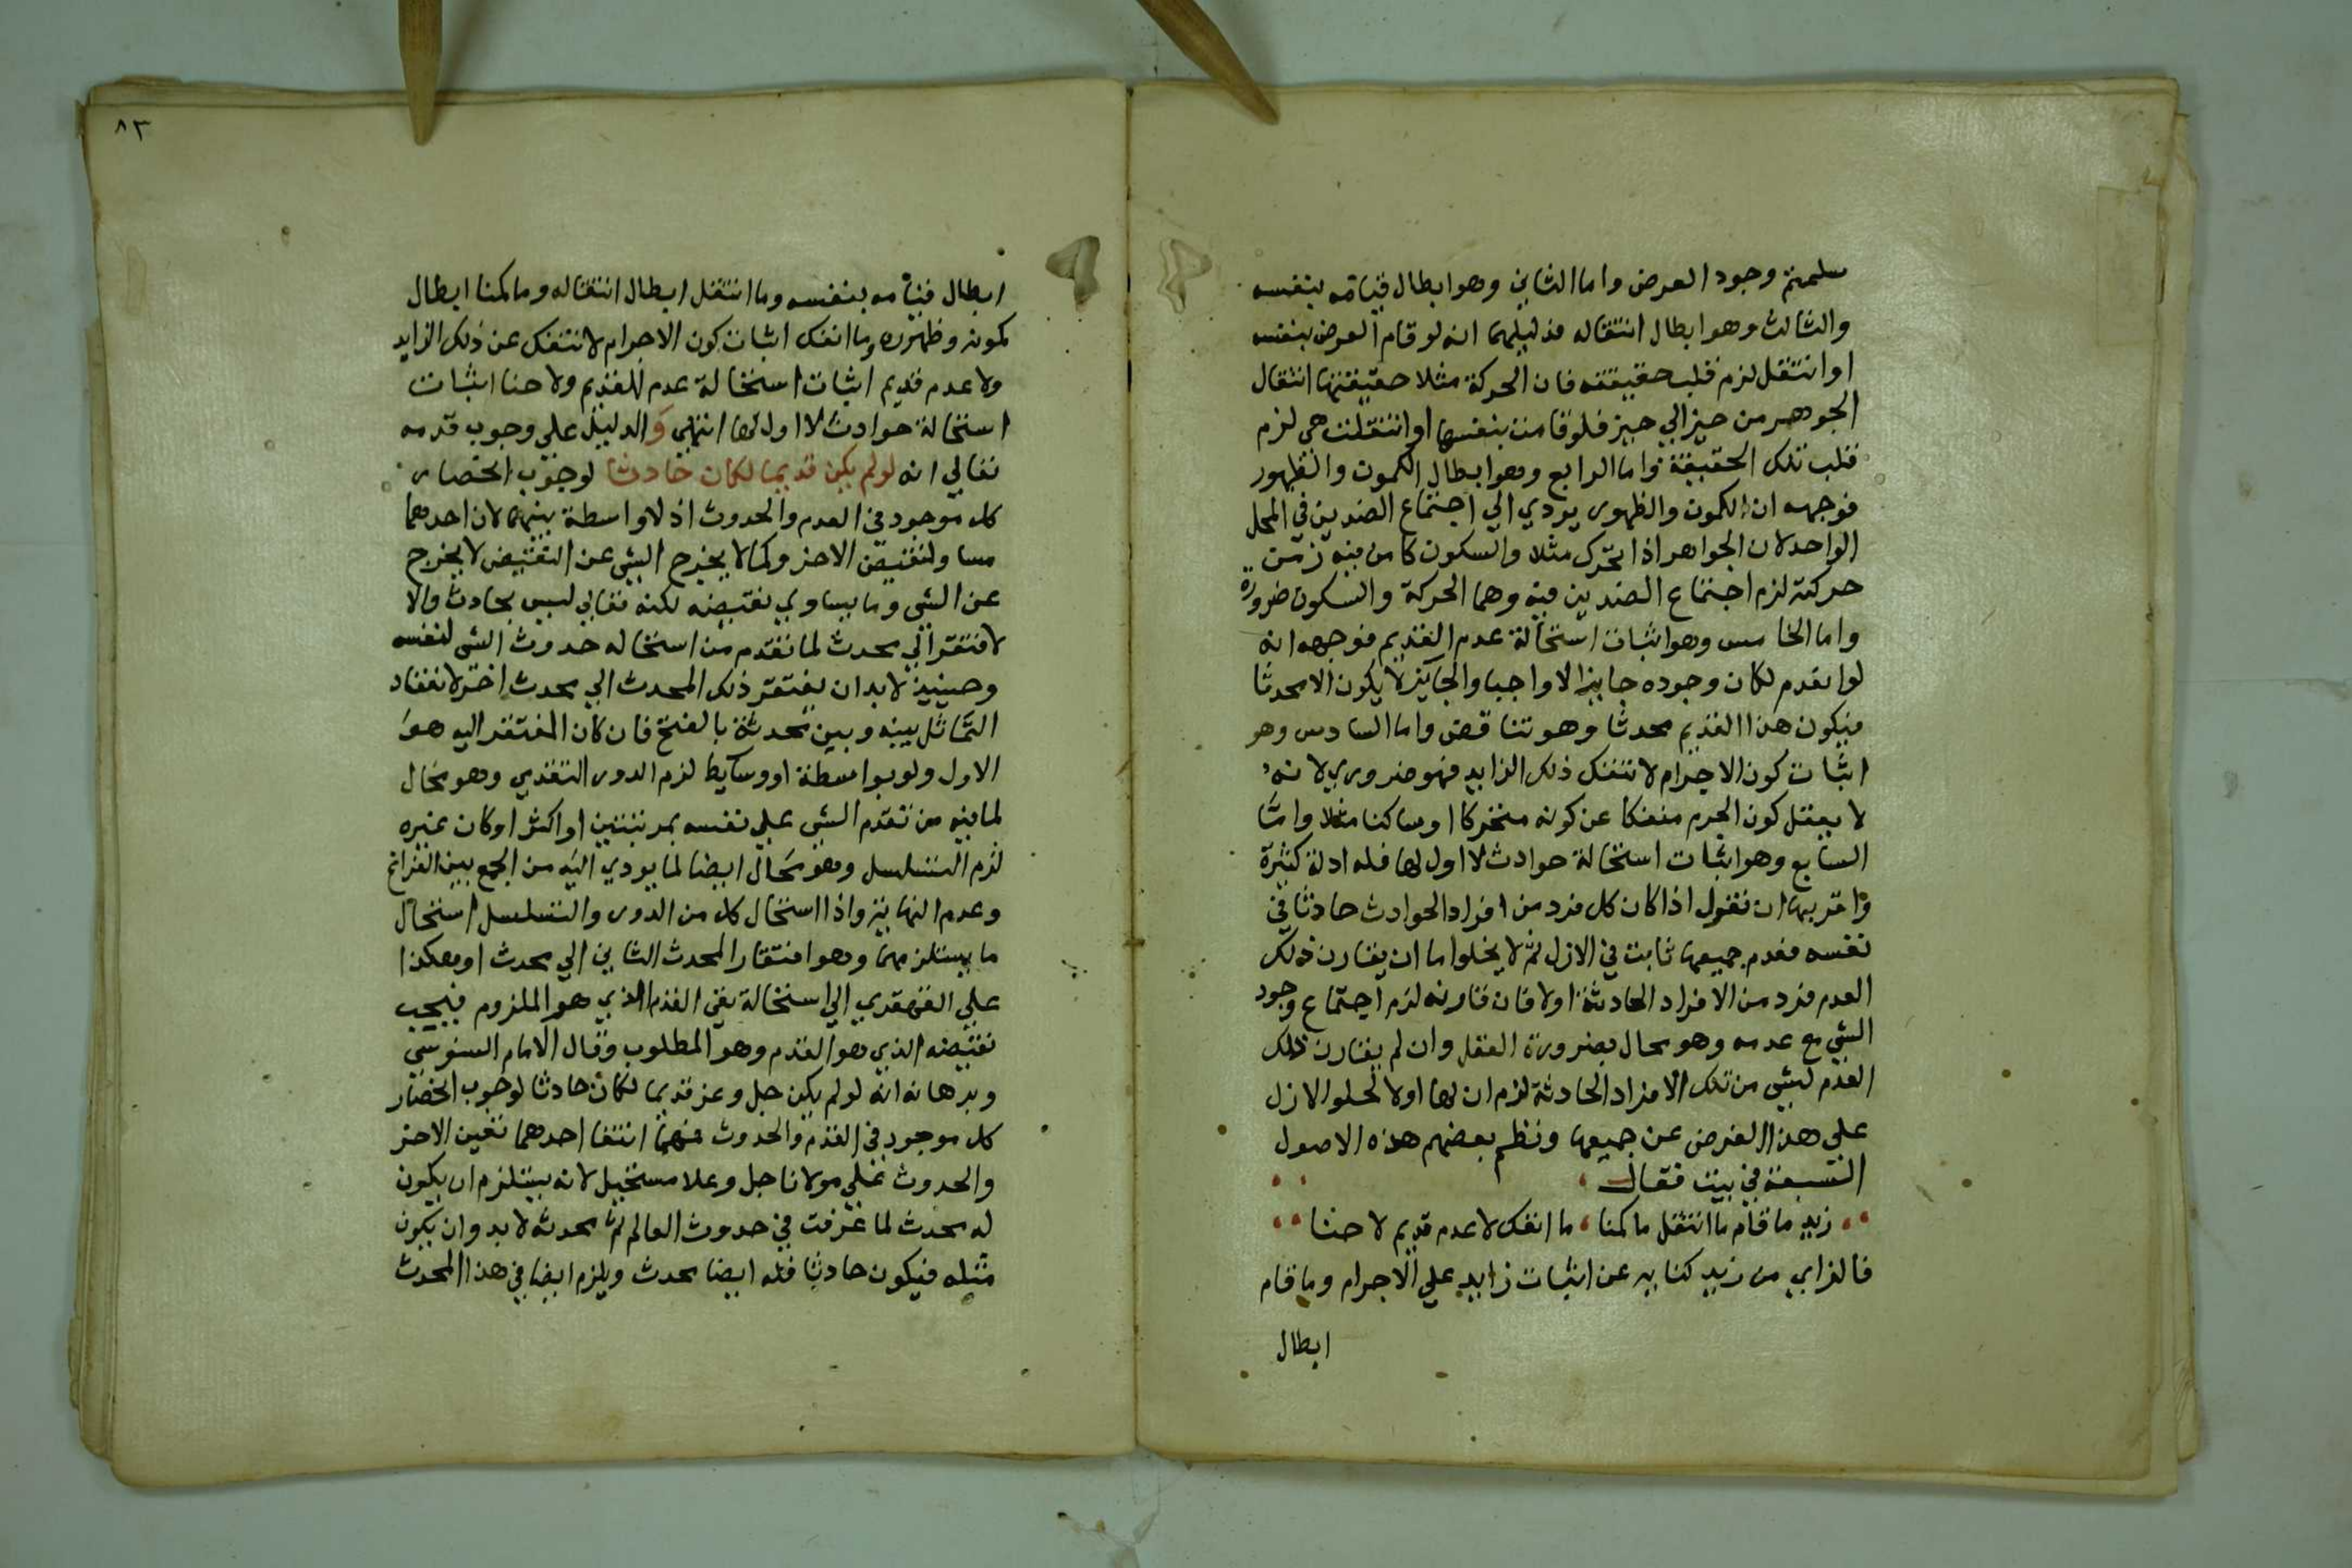 سلمتم وجود العرض واما الثاني وهو ابطال قيامه بنفسه
والثالث وهو ابطال انتقاله فدليلهما انه لو قام العرض بنفسه
او انتقل لزم قلب حقيقته فان الحركة مثلا حقيقتها انتقال
الجوهر من حيز الي حيز فلو قامت بنفسها او انتقلت هي لزم
قلب تلك الحقيقة واما الرابع وهو ابطال الكمون والظهور
فوجهه ان الكمون والظهور يودي الي اجتماع الضدين في المحل
الواحد لان الجواهر اذا تحرك مثلا والسكون كامن فيه زمن
حركته لزم اجتماع الضدين فيه وهما الحركة والسكون ضرورة
واما الخامس وهو اثبات استحالة عدم القديم فوجهه انه
لو انعدم لكان وجوده جايزا لا واجبا والجايز لا يكون الا محدثا
فيكون هذا القديم محدثا وهو تناقض واما السادس وهو
اثبات كون الاجرام لا تنفك ذلك الزايد فهو ضروري لانه
لا يعقل كون الجرم منفكا عن كونه متحركا او ساكنا مثلا واما
السابع وهو اثبات استحالة حوادث لا اول لها فله ادلة كثيرة
واقربها ان نقول اذا كان كل فرد من افراد الحوادث حادثا في
نفسه فعدم جميعها ثابت في الازل ثم لا يخلوا ما ان يقارن ذلك
العدم فرد من الافراد الحادثة اولا فان قارنه لزم اجتماع وجود
الشي مع عدمه وهو محال بضرورة العقل وان لم يقارن ذلك
العدم لشي من تلك الافراد الحادثة لزم ان لها اولا لخلو الازل
علي هذا الفرض عن جميعها ونظم بعضهم هذه الاصول
السبعة في بيت فقال
زيد ما قام ما انتقل ما كمنا ما انفك لا عدم قديم لا حنا
فالزاي من زيد كناية عن اثبات زايد علي الاجرام وما قام
ابطال
٨٣
ابطال قيامه بنفسه وما انتقل ابطال انتقاله وما كمنا ابطال
كمونه وظهوره وما انفك اثبات كون الاجرام لا تنفك عن ذلك الزايد
ولا عدم قديم اثبات استحالة عدم القديم ولا حنا اثبات
استحالة حوادث لا اول لها انتهي والدليل علي وجوب قدمه
تعالي انه لو لم يكن قديما لكان حادثا لوجوب انحصار
كل موجود في القدم والحدوث اذ لا واسطة بينهما لان احدهما
مساو لنقيض الاخر وكما لا يخرج الشي عن النقيض لا يخرج
عن الشي وما يساوي نقيضه لكنه تعالي ليس بحادث والا
لافتقر الي محدث لما تقدم من استحاله حدوث الشي لنفسه
وحينيذ لا بد ان يفتقر ذلك المحدث الي محدث اخر لانعقاد
التماثل بينه وبين محدثه بالفتح فان كان المفتقر اليه هو
الاول ولو بواسطة او وسايط لزم الدور التقدمي وهو محال
لما فيه من تقدم الشي علي نفسه بمرتبتين او اكثر او كان غيره
لزم التسلسل وهو محال ايضا لما يودي اليه من الجمع بين الفراغ
وعدم النهاية واذا استحال كل من الدور والتسلسل استحال
ما يستلزمهما وهو افتقار المحدث الثاني الي محدث او هكذا
علي القهقري الي استحالة نفي القدم الذي هو الملزوم فيجب
نقيضه الذي هو القدم وهو المطلوب وقال الامام السنوسي
وبرهانه انه لو لم يكن جل وعز قديما لكان حادثا لوجوب انحصار
كل موجود في القدم والحدوث فمهما انتفا احدهما تعين الاخر
والحدوث علي مولانا جل وعلا مستحيل لانه يستلزم ان يكون
له محدث لما عرفت في حدوث العالم ثم محدثه لا بد وان يكون
مثله فيكون حادثا فله ايضا محدث ويلزم ايضا في هذا المحدث